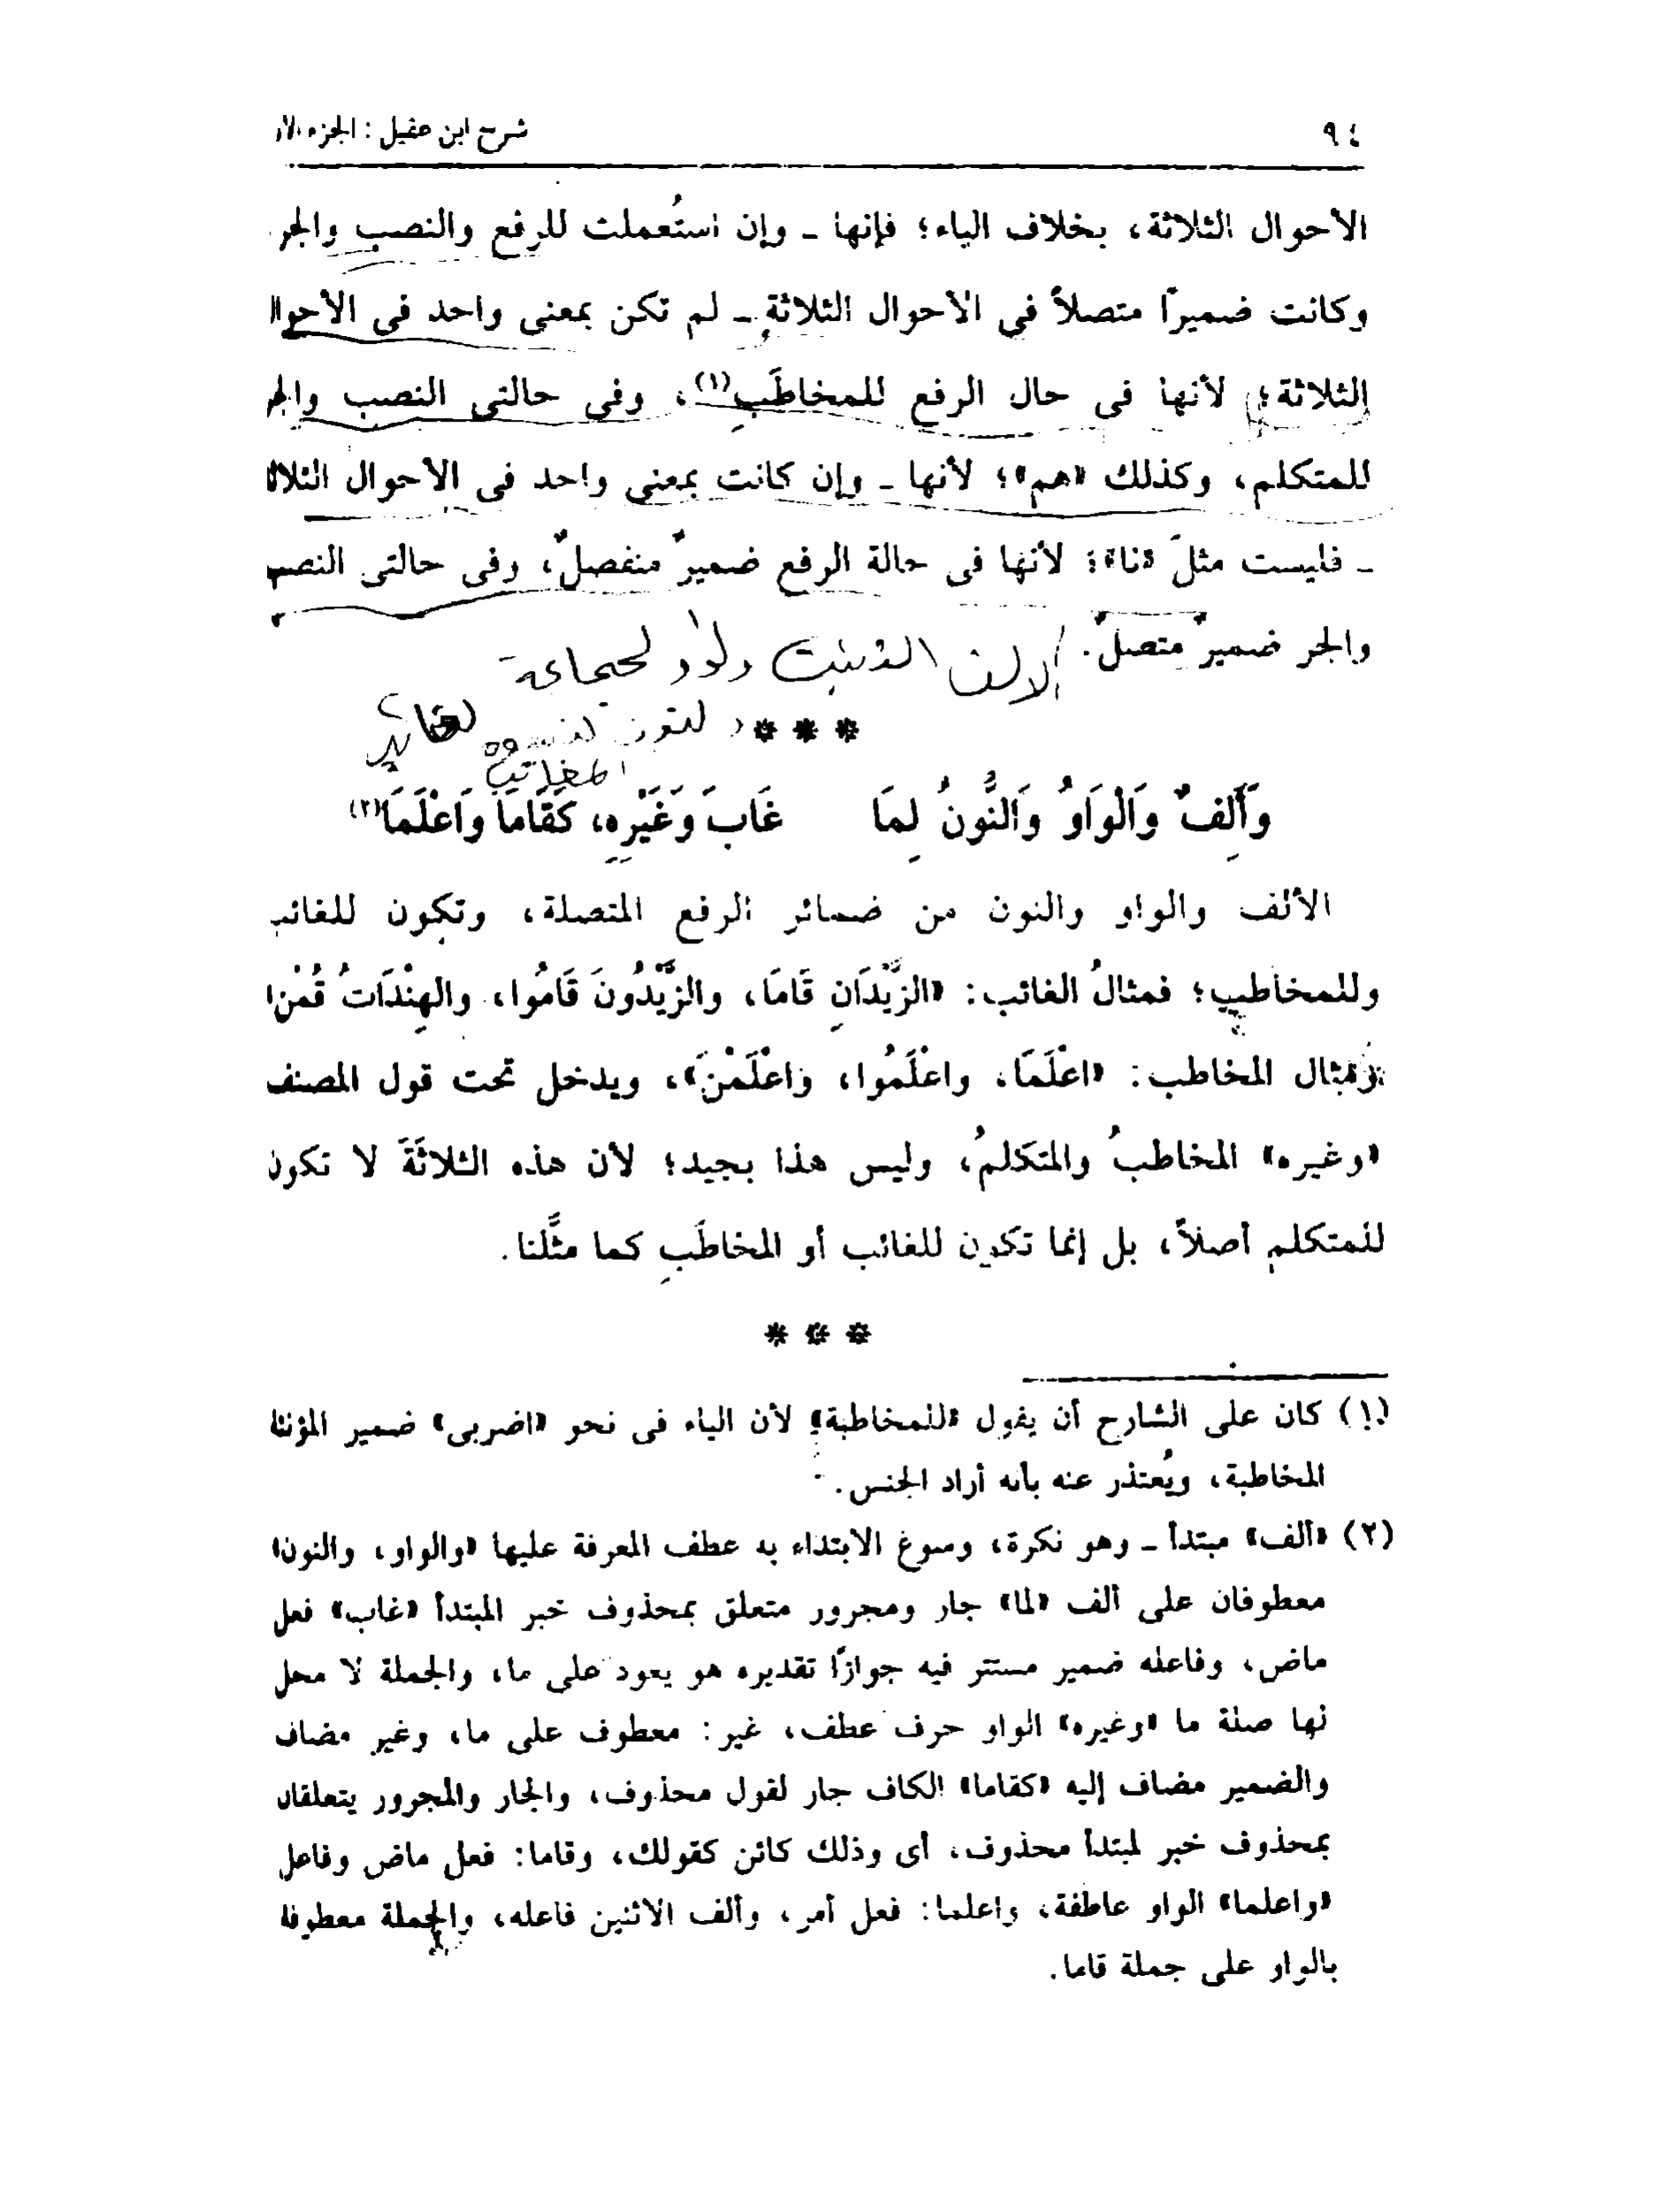 ٩٤
شرح ابن عقيل : الجزء الأ
الأحوال الثلاثة، بخلاف الياء؛ فإنها - وإن استُعملت للرفع والنصب والجر
وكانت ضميرًا متصلاً في الأحوال الثلاثة - لم تكن بمعنى واحد فى الأحوا
الثلاثة؛ لأنها فى حال الرفع للمخاطَبِ(١)، وفى حالتى النصب والجر
للمتكلم، وكذلك «هم»؛ لأنها - وإن كانت بمعنى واحد فى الأحوال الثلاثا
- فليست مثلَ «نا»؛ لأنها فى حالة الرفع ضميرٌ منفصلٌ، وفى حالتى النصب
والجر ضميرٌ متصلٌ.
الالف التثنيت ولواو لجماعة
***
وَأَلِفٌ وَالْوَاوُ وَالنُّونُ لِمَا غَابَ وَغَيْرِهِ، كَقَامَا وَاعْلَمَا(٢)
الألف والواو والنون من ضمائر الرفع المتصلة، وتكون للغائب
وللمخاطب؛ فمثالُ الغائب: «الزَّيْدَانِ قَامَا، والزَّيْدُونَ قَامُوا، والهِنْدَاتُ قُمْنَ»
ومثال المخاطب: «اعْلَمَا، واعْلَمُوا، وَاعْلَمْنَ»، ويدخل تحت قول المصنف
«وغيره» المخاطبُ والمتكلمُ، وليس هذا بجيد؛ لأن هذه الثلاثَةَ لا تكون
للمتكلم أصلاً، بل إنما تكون للغائب أو المخاطَبِ كما مثَّلنا.
***
(١) كان على الشارح أن يقول «للمخاطبة» لأن الياء فى نحو «اضربى» ضمير المؤنثا
المخاطبة، ويُعتذر عنه بأنه أراد الجنس.
(٢) «ألف» مبتدأ - وهو نكرة، وسوغ الابتداء به عطف المعرفة عليها «والواو، والنون»
معطوفان على ألف «لما» جار ومجرور متعلق بمحذوف خبر المبتدأ «غاب» فعل
ماض، وفاعله ضمير مستتر فيه جوازًا تقديره هو يعود على ما، والجملة لا محل
لها صلة ما «وغيره» الواو حرف عطف، غير: معطوف على ما، وغير مضاف
والضمير مضاف إليه «كقاما» الكاف جار لقول محذوف، والجار والمجرور يتعلقان
بمحذوف خبر لمبتدأ محذوف، أى وذلك كائن كقولك، وقاما: فعل ماض وفاعل
«واعلما» الواو عاطفة، واعلما: فعل أمر، وألف الاثنين فاعله، والجملة معطوفا
بالواو على جملة قاما.